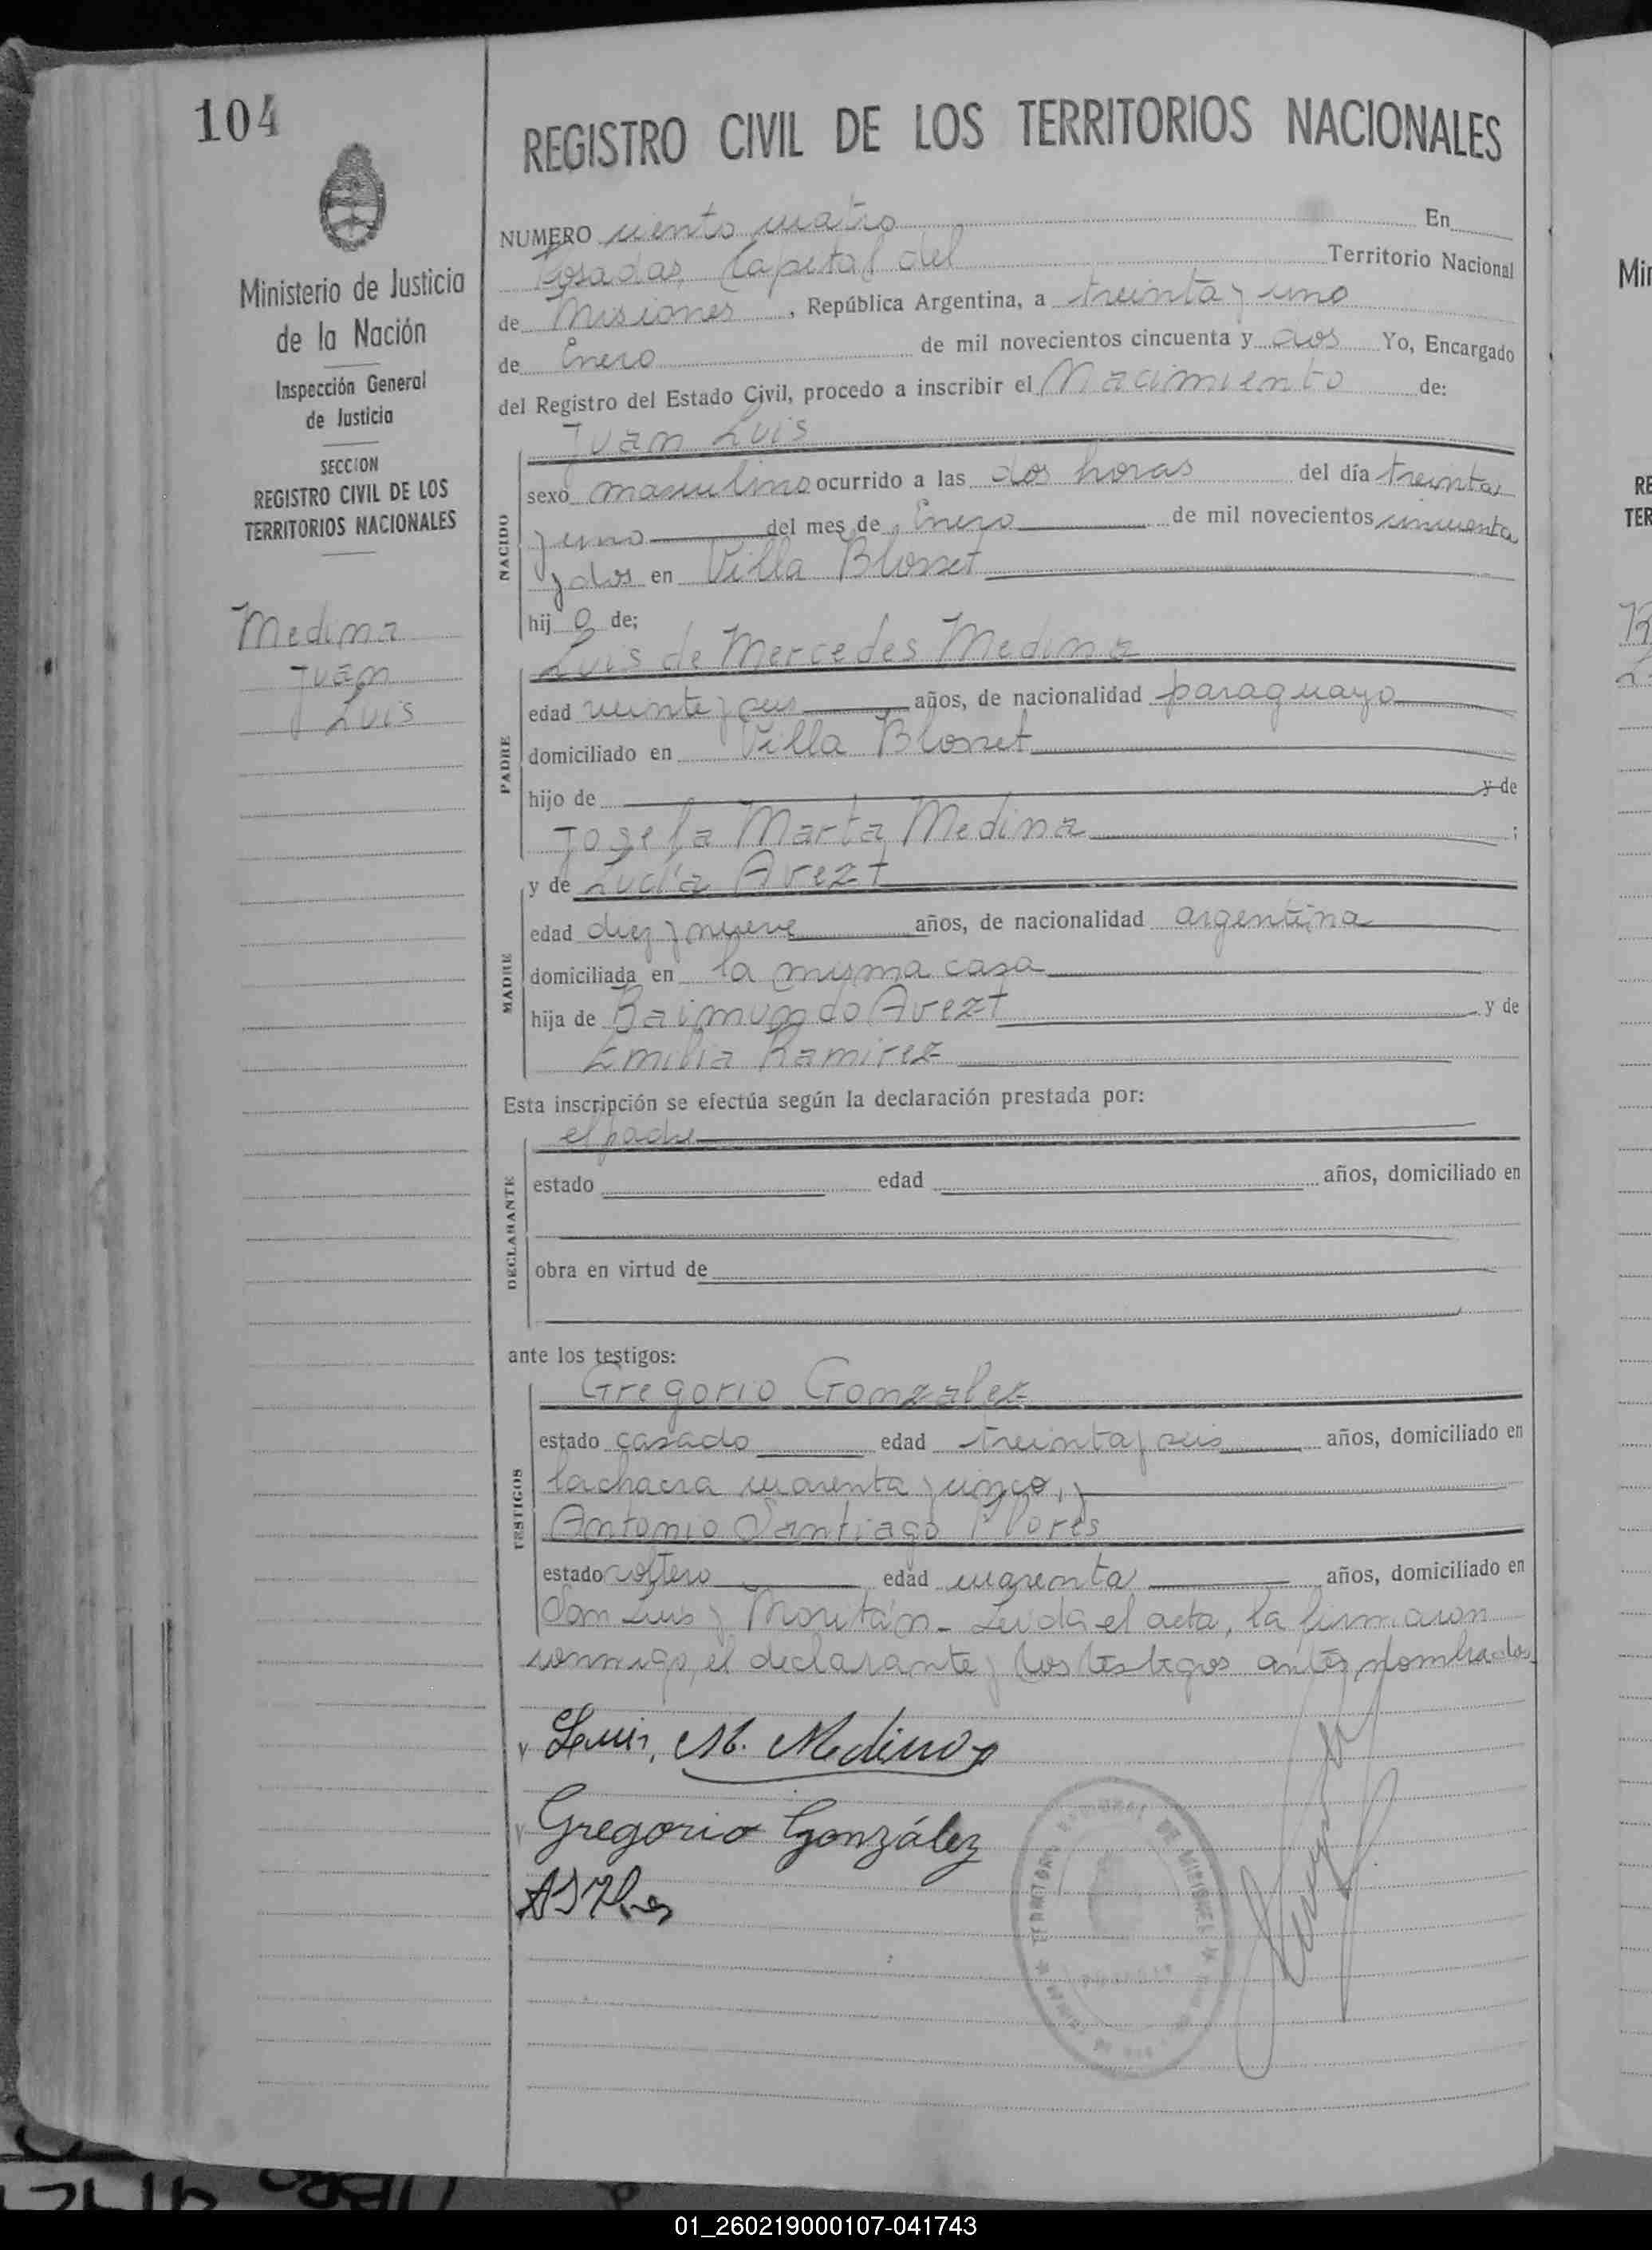 104
Ministerio de Justicia
de la Nación
Inspección General
de Justicia
SECCION
REGISTRO CIVIL DE LOS
TERRITORIOS NACIONALES
Medina
Juan
Luis
REGISTRO CIVIL DE LOS TERRITORIOS NACIONALES
NUMERO ciento cuatro En
Posadas, Capital del Territorio Nacional
de Misiones, República Argentina, a treinta y uno
de Enero de mil novecientos cincuenta y dos Yo, Encargado
del Registro del Estado Civil, procedo a inscribir el Nacimiento de:
Juan Luis
NACIDO
sexo masculino ocurrido a las dos horas del día treinta
y uno del mes de Enero de mil novecientos cincuenta
y dos en Villa Blosset
hij o de;
Luis de Mercedes Medina
PADRE
edad veinte y seis años, de nacionalidad paraguayo
domiciliado en Villa Blosset
hijo de y de
Josefa Marta Medina ;
y de Lucía Arezt
MADRE
edad diez y nueve años, de nacionalidad argentina
domiciliada en la misma casa
hija de Raimundo Arezt y de
Emilia Ramirez
Esta inscripción se efectúa según la declaración prestada por:
el padre
DECLARANTE
estado edad años, domiciliado en
obra en virtud de
ante los testigos:
Gregorio Gonzalez
TESTIGOS
estado casado edad treinta y seis años, domiciliado en
la chacra cuarenta y cinco, y
Antonio Santiago Flores
estado soltero edad cuarenta años, domiciliado en
San Luis y Moritán. Leida el acta, la firmaron
conmigo, el declarante y los testigos antes nombrados.
Luis, M. Medina
Gregorio González
A S Flores
TERRITORIO NACIONAL DE MISIONES
01_260219000107-041743